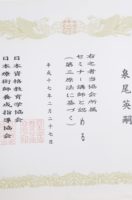 泉尾英嗣
右之者当協会所属
セミナー講師と認める
（第三療法に基づく）
平成十七年二月二十七日
日本資格教育学協会
日本療術師養成指導協会